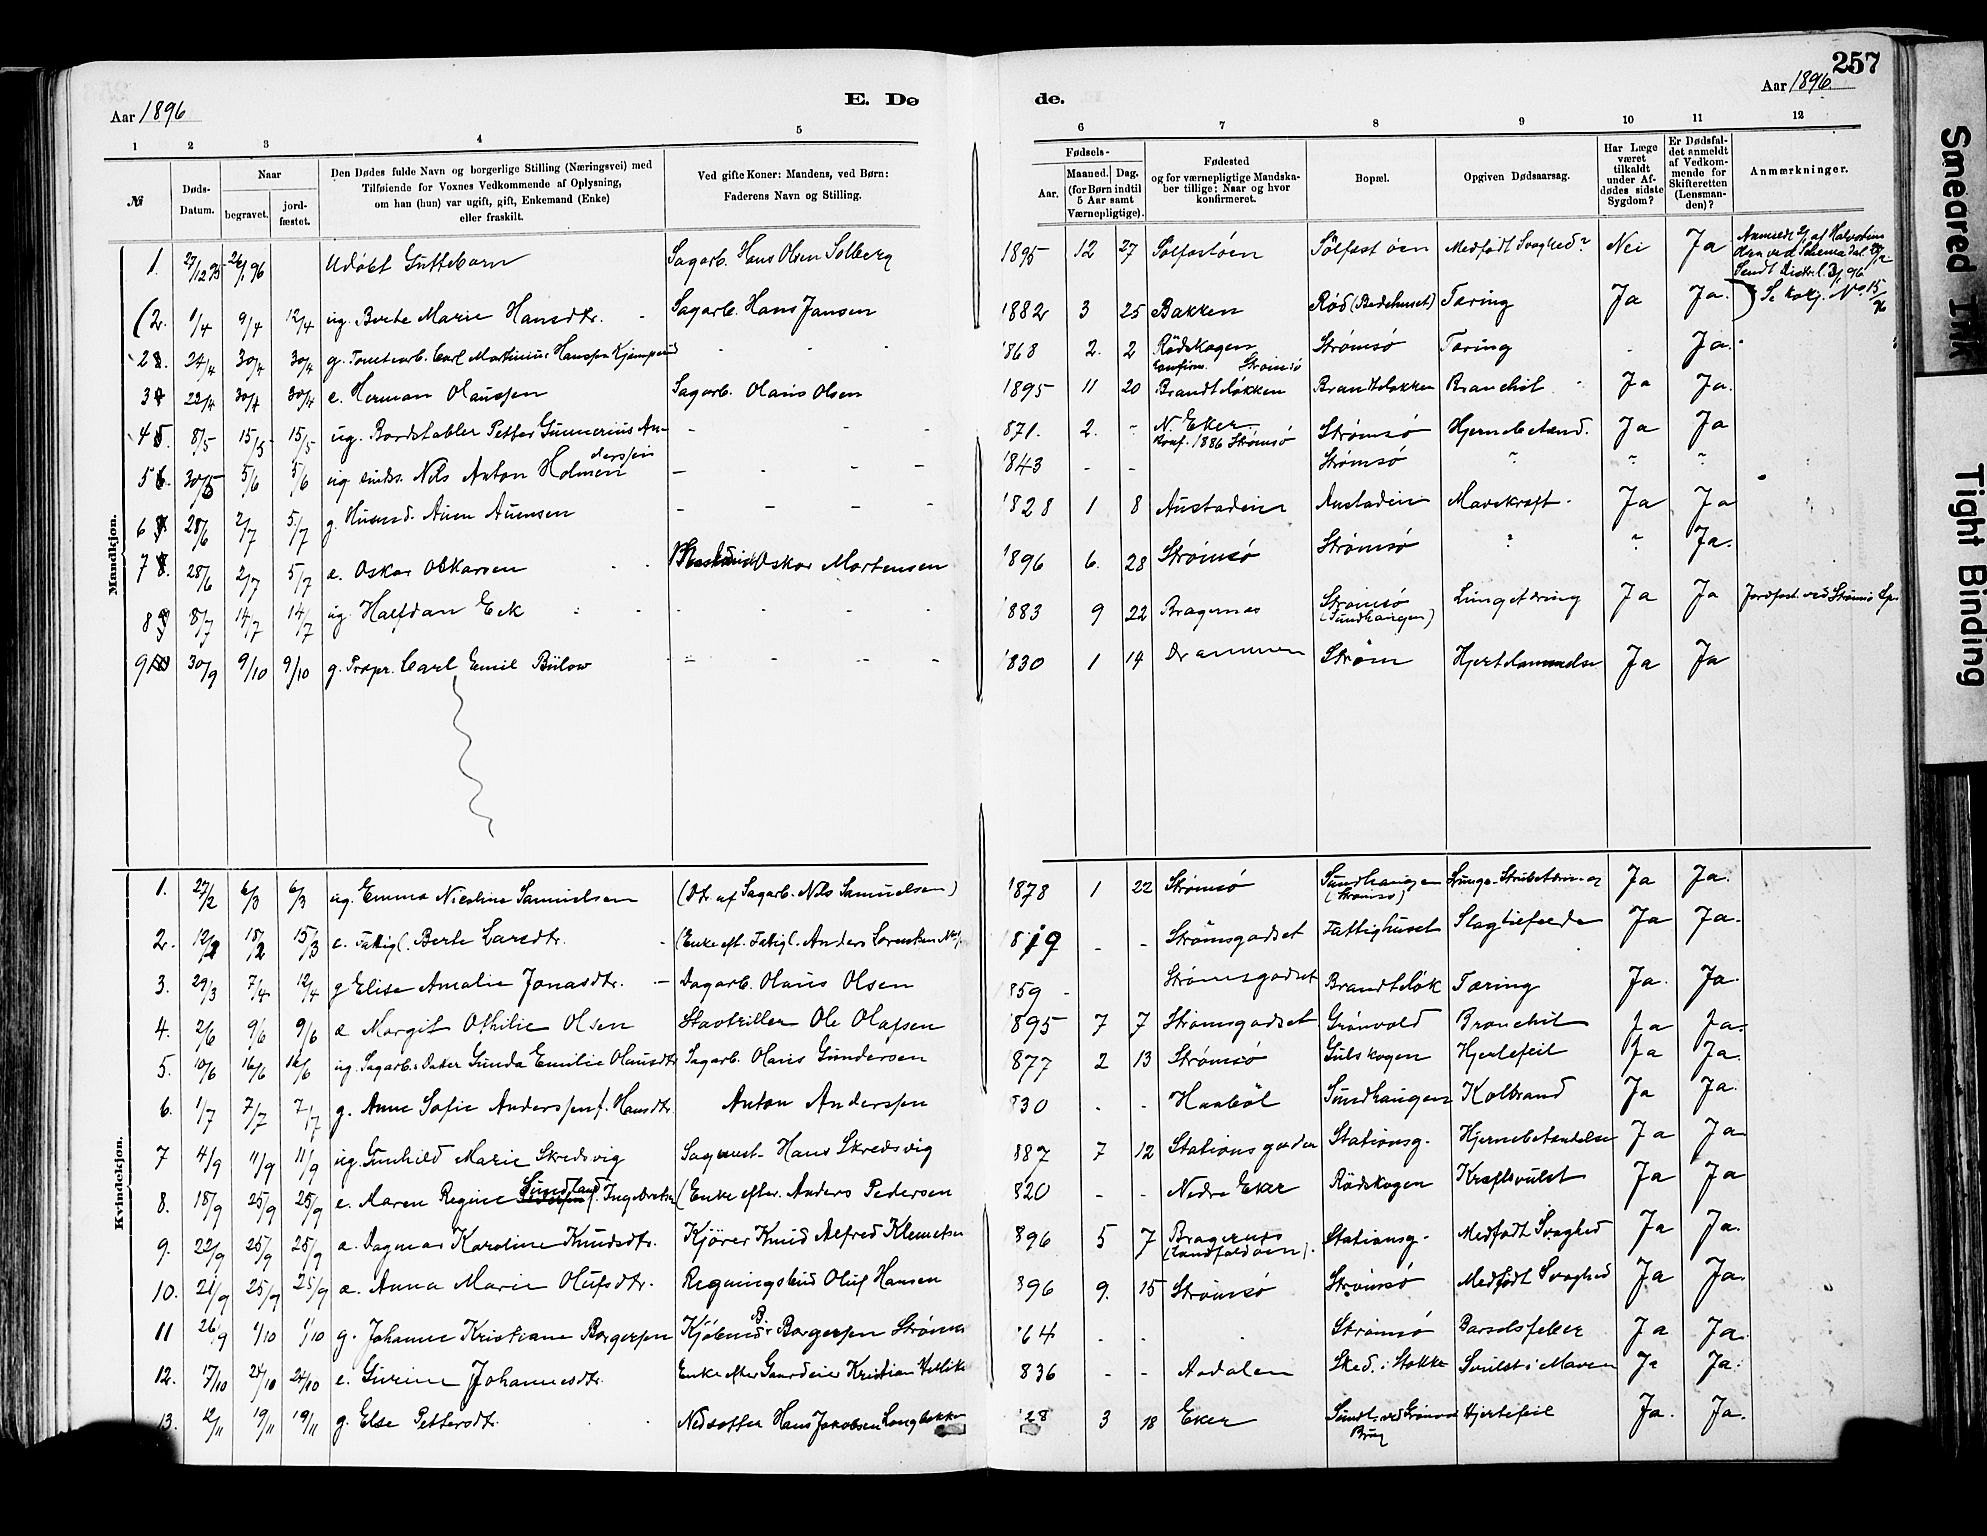 257
Aar 1896
E. Dø
de.
Aar 1896
1 2 3 4 5 6 7 8 9 10 11 12
№
Døds-Datum.
Naar
begravet.
jord-fæstet.
Den Dødes fulde Navn og borgerlige Stilling (Næringsvei) med
Tilføiende for Voxnes Vedkommende af Oplysning,
om han (hun) var ugift, gift, Enkemand (Enke)
eller fraskilt.
Ved gifte Koner: Mandens, ved Børn:
Faderens Navn og Stilling.
Fødsels-
Aar.
Maaned. Dag.
(for Børn indtil
5 Aar samt
Værnepligtige).
Fødested
og for værnepligtige Mandska-
ber tillige: Naar og hvor
konfirmeret.
Bopæl.
Opgiven Dødsaarsag.
Har Læge
været
tilkaldt
under Af-
dødes sidste
Sygdom?
Er Dødsfal-
det anmeldt
af Vedkom-
mende for
Skifteretten
(Lensman-
den)?
Anmærkninger.
Mandkjøn.
1. 27/12 95 26/1 96 Udøbt Guttebarn Sagarb. Hans Olsen Solberg 1895 12 27 Sølfastøen Sølfastøen Medfødt Svaghed? Nei Ja
Sendt Distr.l. 3/1 96
(2. 1/4 9/4 12/4 ug. Berte Marie Hansdtr. Sagarb. Hans Jansen 1882 3 25 Bakken Rød (Bedehuset) Tæring Ja Ja. Se kvkj. No 15/96
2 24/4 30/4 30/4 g. Tomtearb. Carl Martinius Hanssen Kjemperud - - - 1868 2. 2 Rødskogen Strømsø Tæring - Ja.
konfirm. Strømsø
3 23/4 30/4 30/4 e. Herman Olaussen Sagarb. Olaus Olsen 1895 11 20 Brandtsløkken Brandtsløkken Bronchit Ja Ja.
4 8/5 15/5 15/5 ug. Bordstabler Petter Gunnerius An- - - - 1871. 2. - N. Eker Strømsø Hjernebetænd. Ja Ja
derssen konf. 1886 Strømsø
5 30/5 5/6 5/6 ug. sinds. Nils Anton Holmen - - - - 1843 - - Strømsø ? ? ?
6 28/6 2/7 5/7 g. Husmd. Auen Auensen - - - - 1828 1 8 Austadeie Austadeie Mavekræft Ja Ja
7 28/6 2/7 5/7 æ. Oskar Oskarsen Oskar Mortensen 1896 6. 28 Strømsø Strømsø ? ? Ja.
8 8/7 14/7 14/7 ug. Halfdan Eek - - - - 1883 9 22 Bragernæs Strømsø Lungetæring Ja Ja Jordfæst. ved Strømsø Spr.
(Sundhaugen)
9 30/9 9/10 9/10 g. Propr. Carl Emil Bülow - - - - 1830 1 14 Drammen Strøm Hjertelammelse Ja Ja
Kvindekjøn.
1. 27/2 6/3 6/3 ug. Emma Nicoline Samuelsen (Dtr. af Sagarb. Nils Samuelsen) 1878 1 22 Strømsø Sundhaugen Lunge- Strubetæring Ja Ja.
(Strømsø)
2. 12/2 18/2 15/3 e. Fattigl. Berte Larsdtr. (Enke eft. Fattigl. Anders Lorentsen 1819 - - Strømsgodset Fattighuset Slagtilfælde Ja Ja.
3. 29/3 7/4 12/4 g Elise Amalie Jonasdtr. - Dagarb. Olaus Olsen 1859 - Strømsgodset Brandtsløk Tæring Ja. Ja.
4. 2/6 9/6 9/6 æ Margit Othilie Olsen Stavtriller Ole Olafsen 1895 7 7 Strømsgodset Grønvold Bronchit Ja Ja.
5. 10/6 16/6 16/6 ug. Sagarb.s Datter Gunda Emilie Olausdtr Sagarb. Olaus Gundersen 1877 2 13 Strømsø Gulskogen Hjertefeil Ja Ja.
6. 1/7 7/7 7/7 g. Anne Sofie Anderssen f. Hansdtr. Anton Anderssen 1830 - - Haabøl Sundhaugen Kolbrand Ja Ja.
7 4/9 11/9 11/9 ug. Gunhild Marie Skredsvig Sagmst. Hans Skredsvig 1887 7 12 Stationsgaden Stationsg. Hjernebetændelse Ja Ja
8. 18/9 25/9 25/9 e. Maren Regine Sundland f. Ingebretsen (Enke efter. Anders Pedersen 1820 - - Nedre Eker Rødskogen Kræftsvulst Ja Ja
9. 22/9 25/9 25/9 æ. Dagmar Karoline Knudsdtr. Kjører Knud Alfred Klemetsen 1896 5 7 Bragernæs Stationsg. Medfødt Svaghed Ja Ja.
(Landfaldøen).
10. 21/9 25/9 25/9 æ. Anna Marie Olufsdtr. Regningsbud Oluf Hansen 1896 9. 15 Strømsø Strømsø Medfødt Svaghed Ja Ja.
11 26/9 1/10 1/10 g. Johanne Kristiane Borgersen Kjøbmd. B. Borgersen Strømsø 1864 - - - Strømsø Barselsfeber Ja Ja.
12. 17/10 24/10 24/10 e. Gurine Johannesdtr. Enke efter Gaardeier Kristian 1836 - - Aadalen Sked. i Stokke Svulst i Maven Ja Ja.
13. 12/11 19/11 19/11 g. Else Pettersdtr. Nedsætter Hans Jakobsen Langløkken 1828 3 18 Eker Sundl. ved Grønvold Hjertefeil Ja. Ja.
Brug
Smeared Ink
Tight Binding